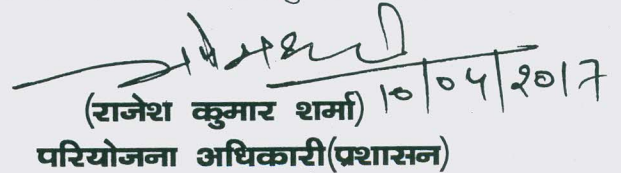 10/04/2017
(राजेश कुमार शर्मा)
परियोजना अधिकारी(प्रशासन)